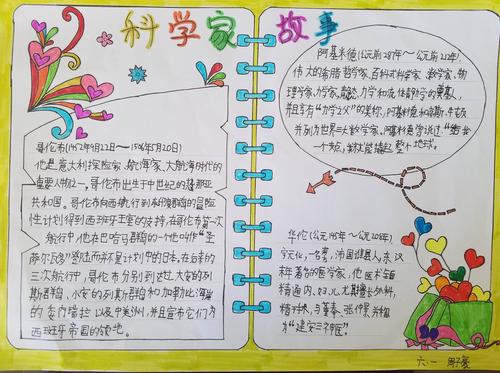 科学家 故事
哥伦布(1452年9月22日～1506年5月20日)
他是意大利探险家、航海家、大航海时代的
重要人物之一。哥伦布出生于中世纪的热那亚
共和国。哥伦布向西航行到东印度群岛的冒险
性计划得到西班牙王室的支持,在哥伦布第一次
航行中,他在巴哈马群岛的一个他叫作"圣
萨尔瓦多"登陆而并不是计划中的日本,在后来的
三次航行中,哥伦布分别到达过大安的列
斯群岛、小安的列斯群岛和加勒比海岸
的委内瑞拉以及中美洲,并且宣布它们为
西班牙帝国的领地。
阿基米德(公元前287年～公元前212年)
伟大的希腊哲学家、百科式科学家、数学家、物
理学家、力学家,静态力学和流体静力学的奠基人
并且享有"力学之父"的美称,阿基米德和高斯、牛顿
并列为世界三大数学家。阿基米德曾说过:"给我
一个支点,我就能撬起整个地球。
华佗(公元145年～公元208年)
字元化,一名旉,沛国谯县人,东汉
末年著名的医学家,他医术全面
精通内、妇、儿尤其擅长外科,
与董奉、张仲景并称
为"建安三神医"。
六、一